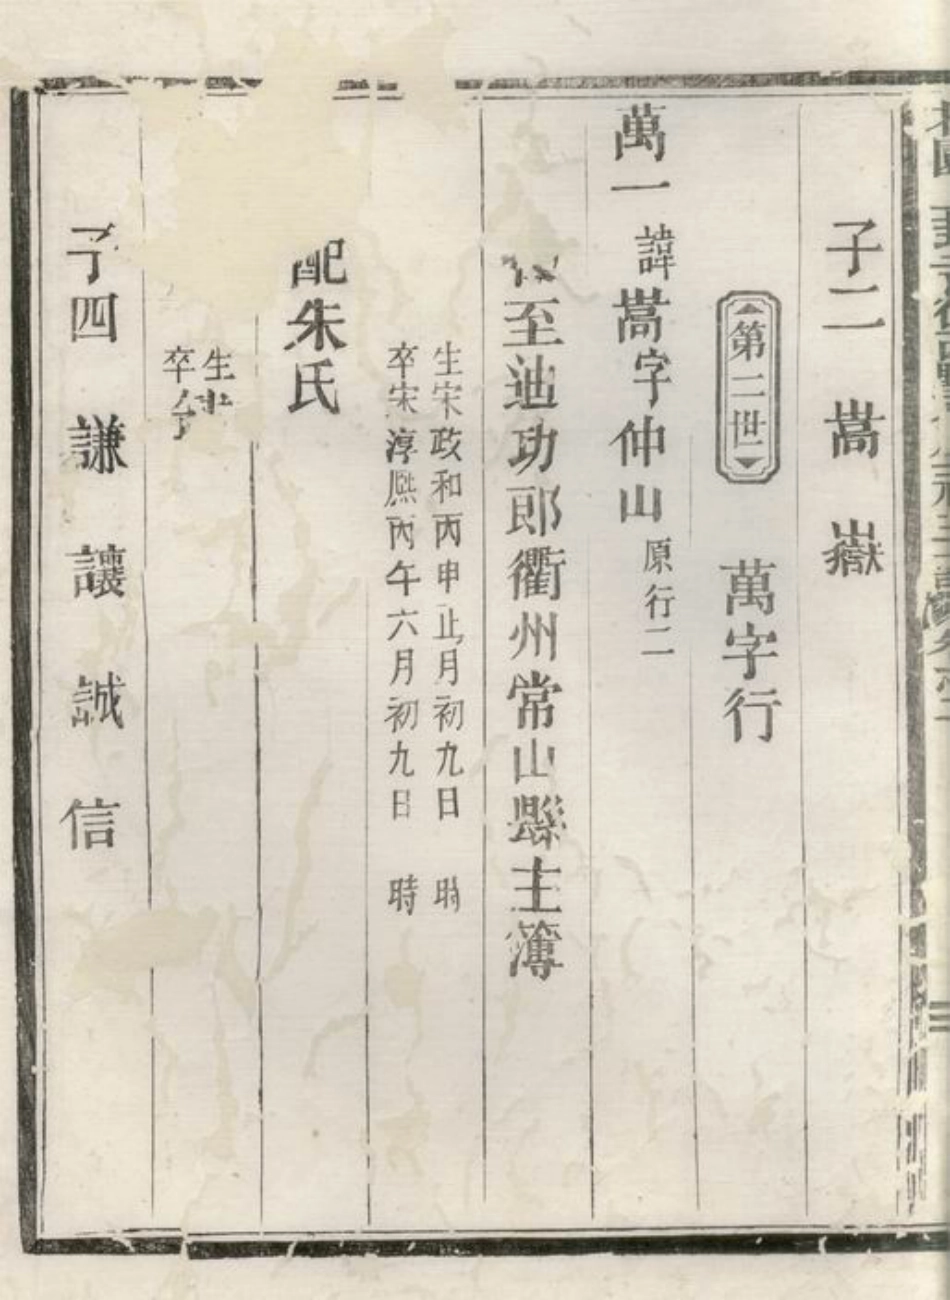 子二　嵩　嶽
第二世　萬字行
萬一　諱嵩字仲山　原行二
至迪功郎衢州常山縣主簿
生宋政和丙申正月初九日　時
卒宋淳熈丙午六月初九日　時
配朱氏
生
卒
子四　謙　讓　誠　信